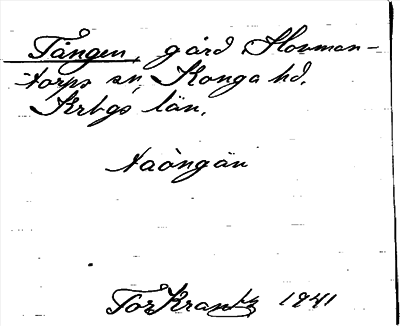 Tången, gård Hovman-
torps sn, Konga hd.
Krbgs län.
taòngän
Tor Krantz 1941